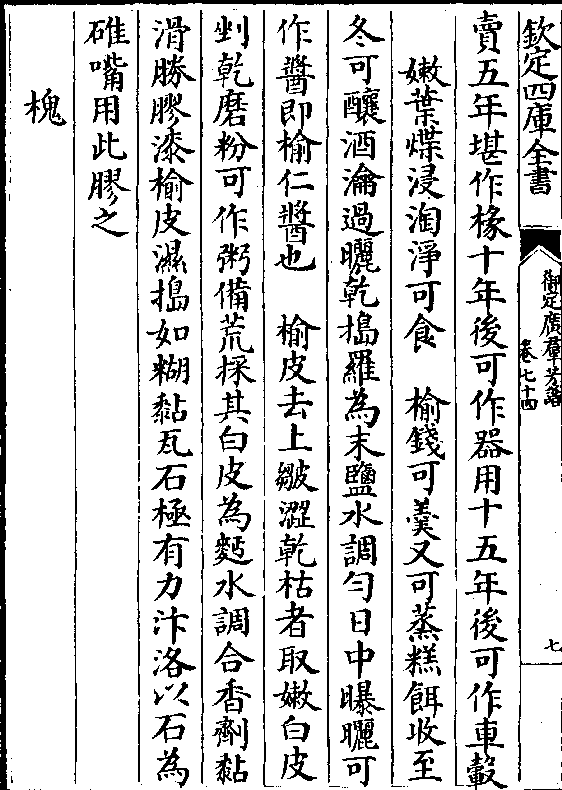 欽定四庫全書
御定廣羣芳譜
卷七十四
七
賣五年堪作椽十年後可作器用十五年後可作車轂
嫩葉煠浸淘淨可食　榆錢可羹又可蒸糕餌收至
冬可釀酒瀹過曬乾搗羅為末鹽水調勻日中曝曬可
作醬即榆仁醬也　榆皮去上皺澀乾枯者取嫩白皮
剉乾磨粉可作粥備荒採其白皮為麫水調合香劑黏
滑勝膠漆榆皮濕搗如糊黏瓦石極有力汴洛以石為
碓嘴用此膠之
槐